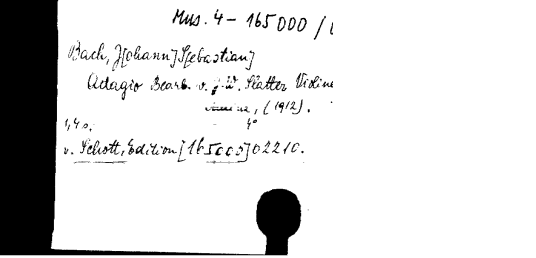 Mus. 4 - 165000 /
Bach, J[ohann] S[ebastian]
Adagio Bearb. v. J. W. Slatter Violine
, (1912).
1, 4 s. 4°
v. Schott, Edition [165000] 02210.